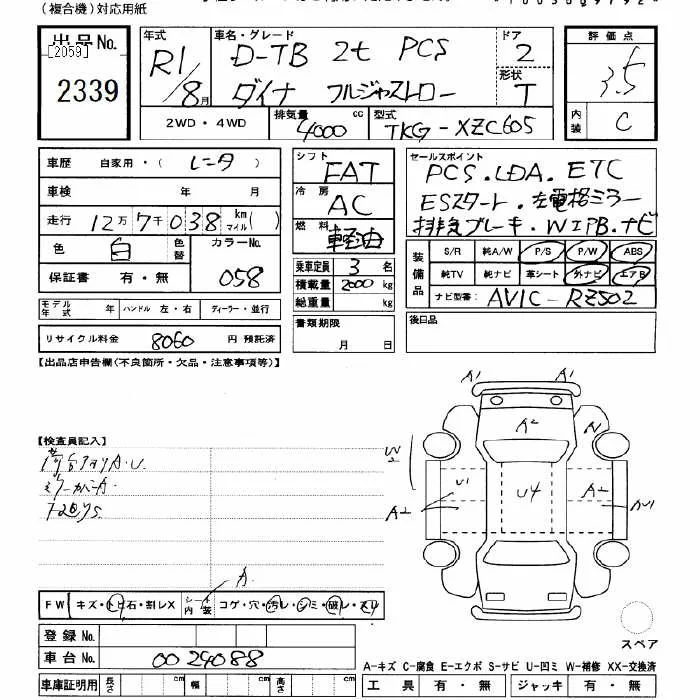 (複合機)対応用紙
出品No. [2059] 2339
年式 R1/8月
車名・グレード D-TB 2t PCS
ダイナ フルジャストロー
ドア 2
形状 T
評価点 3.5
内装 C
2WD・4WD
排気量 4000 cc
型式 TKG-XZC605
車歴 自家用・(レンタ)
車検 年 月
走行 12万7千038 km マイル( )
色 白 色替 カラーNo. 058
保証書 有・無
シフト FAT
冷房 AC
燃料 軽油
乗車定員 3 名
積載量 2000 kg
総重量 kg
セールスポイント
PCS.LDA.ETC
ESスタート.左電格ミラー
排気ブレーキ.WIPB.ナビ
装備品 S/R 純A/W P/S P/W ABS
純TV 純ナビ 革シート 外ナビ エアB
ナビ型番: AVIC-RZ502
モデル年式 年 ハンドル 左・右 ディーラー・並行
リサイクル料金 8060 円 預託済
書類期限 月 日
後日品
【出品店申告欄(不良箇所・欠品・注意事項等)】
【検査員記入】
A1 A1
A2
W2 U1 A2 U4 A2
FW キズ・トビ石・割レX シート内装 コゲ・穴・汚レ・シミ・破レ・スレ
A.
登録No.
車台No. 0024088
スペア
A-キズ C-腐食 E-エクボ S-サビ U-凹ミ W-補修 XX-交換済
車庫証明用 長さ cm 幅 cm 高さ cm
工具 有・無 ジャッキ 有・無